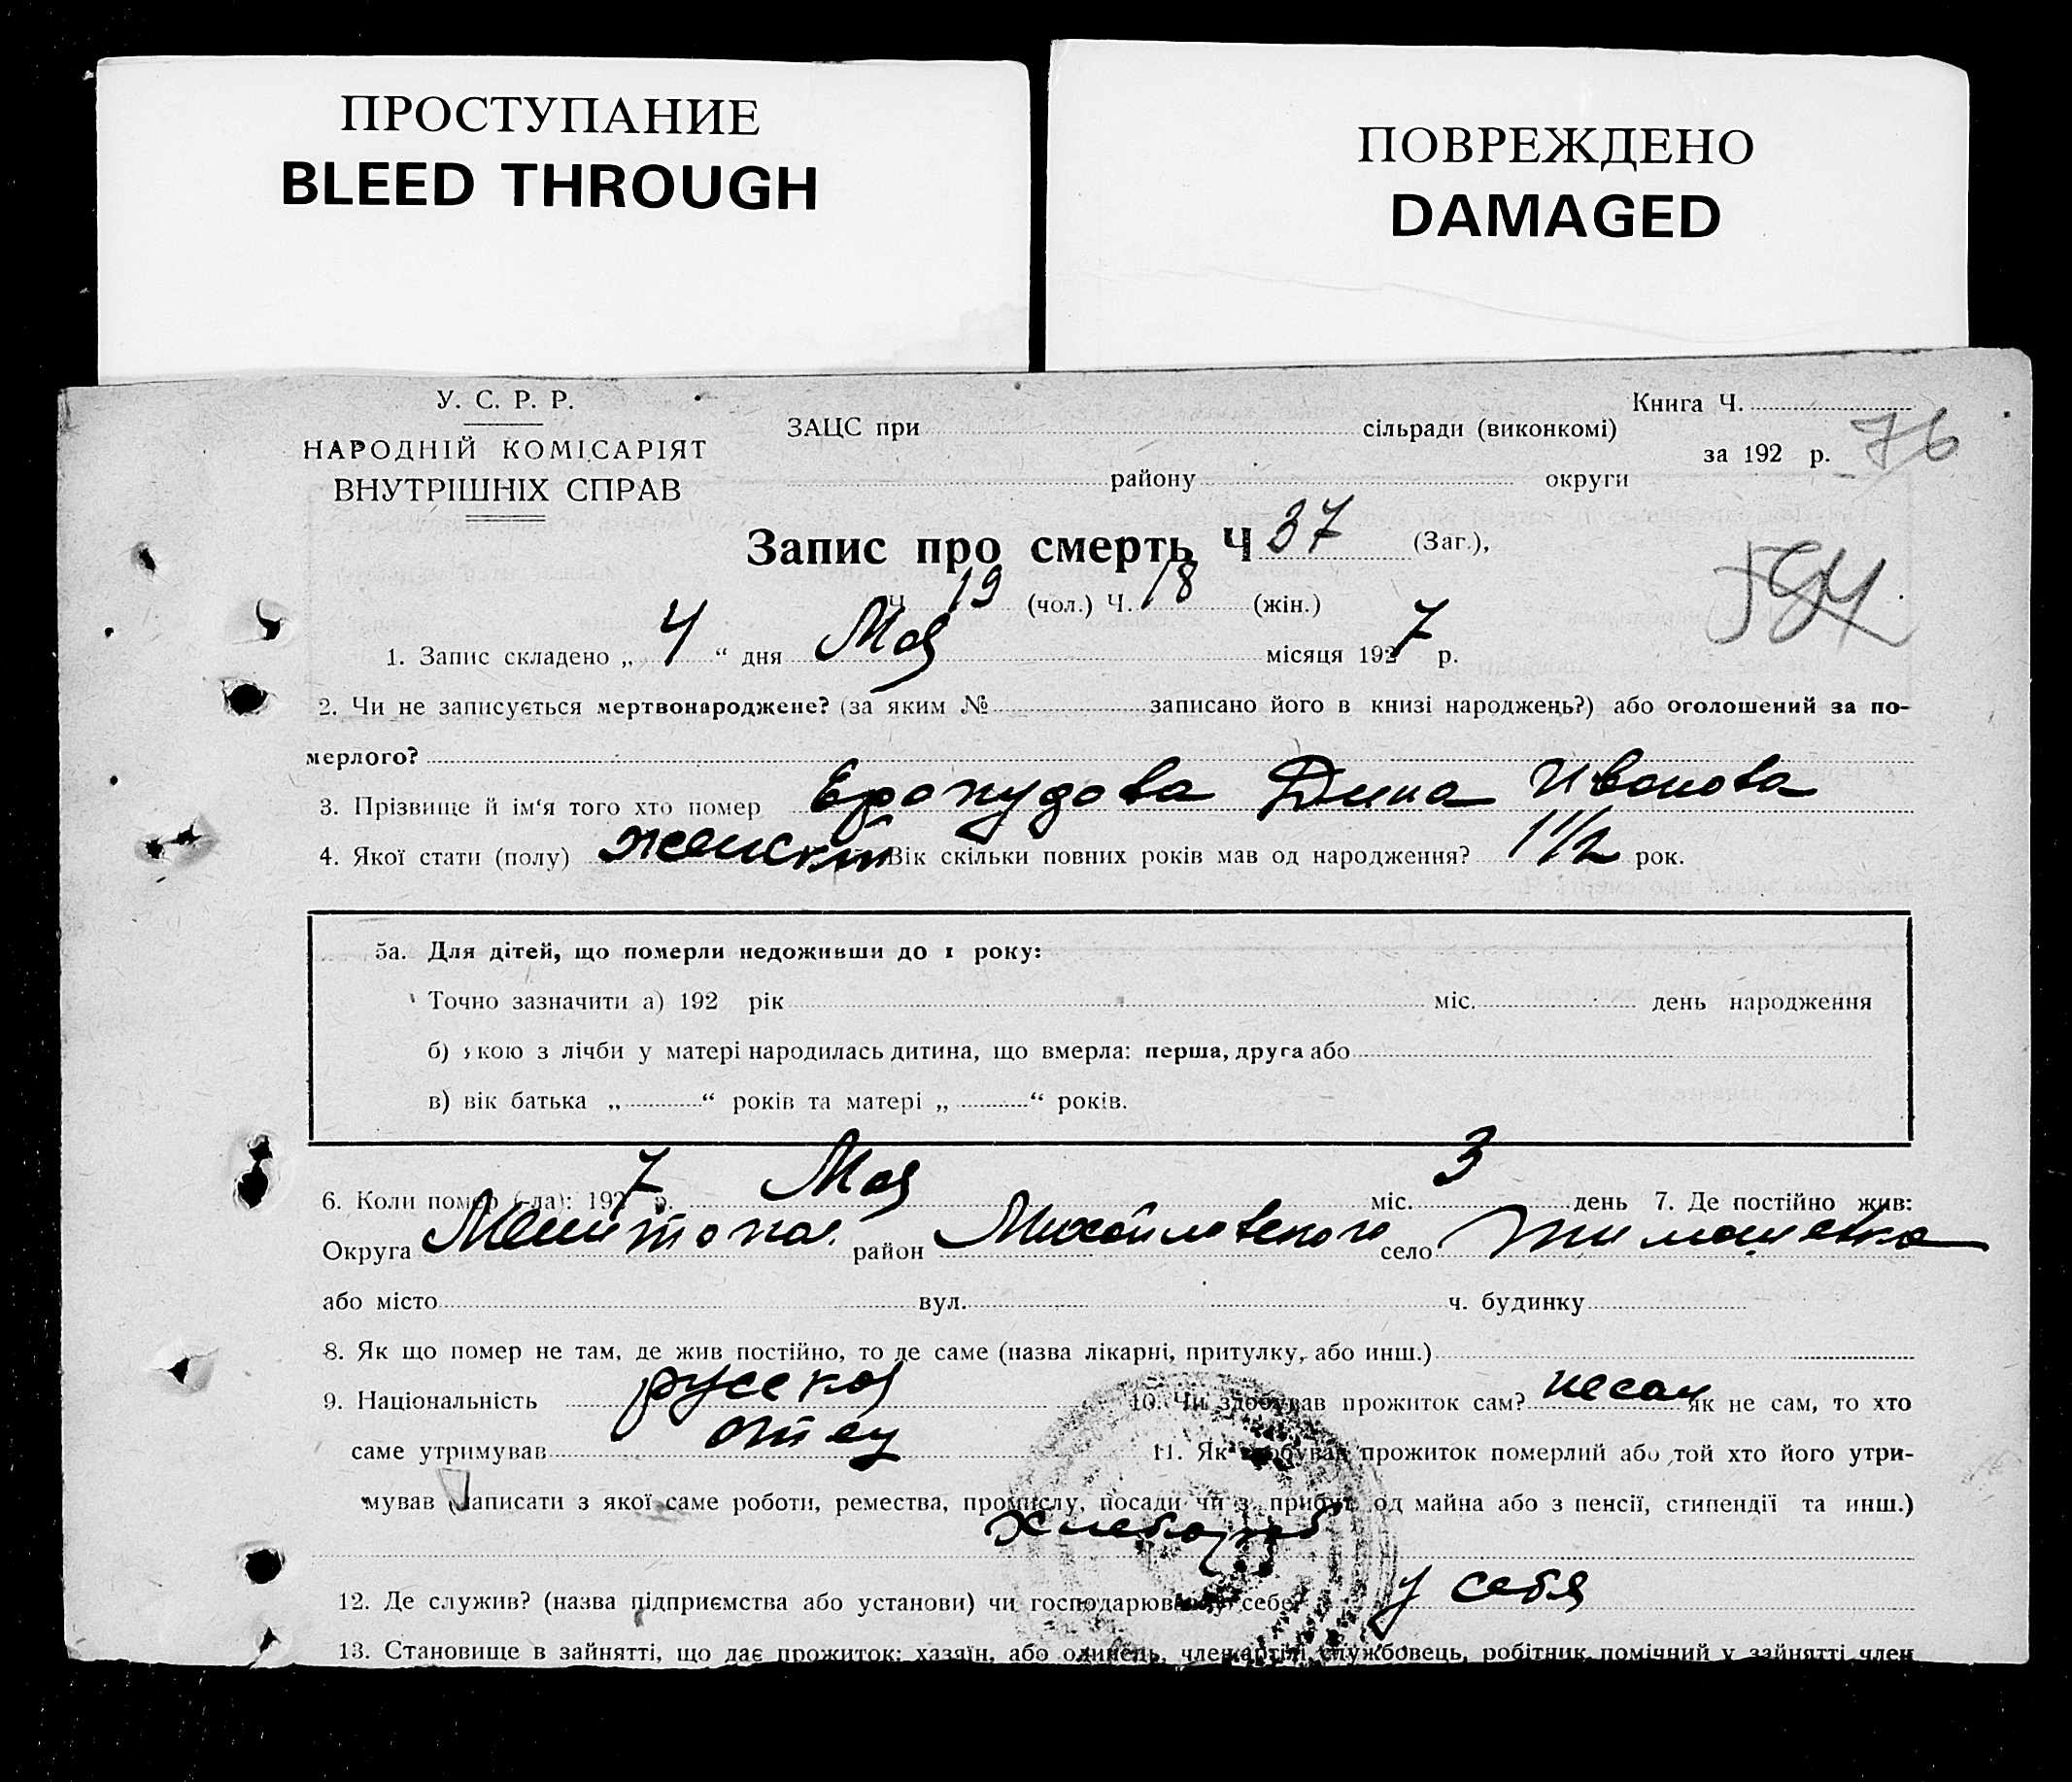 ПРОСТУПАНИЕ
BLEED THROUGH
ПОВРЕЖДЕНО
DAMAGED
У. С. Р. Р.
НАРОДНІЙ КОМІСАРІЯТ
ВНУТРІШНІХ СПРАВ
Книга Ч.
ЗАЦС при сільради (виконкомі)
за 192 р. 76
району округи
Запис про смерть Ч 37 (Заг.),
Ч. 19 (чол.) Ч. 18 (жін.)
594
1. Запис складено „ 4 “ дня Мая місяця 1927 р.
2. Чи не записується мертвонароджене? (за яким № записано його в книзі народжень?) або оголошений за по-
мерлого?
3. Прізвище й ім'я того хто помер Ерокудова Дина Иванова
4. Якої стати (полу) женский Вік скільки повних років мав од народження? 1 1/2 рок.
5а. Для дітей, що померли недоживши до 1 року:
Точно зазначити а) 192 рік міс. день народження
б) якою з лічби у матері народилась дитина, що вмерла: перша, друга або
в) вік батька „ “ років та матері „ “ років.
6. Коли помер (-ла): 1927 р. Мая міс. 3 день 7. Де постійно жив:
Округа Мелитопол. район Михайловского село Тимашевка
або місто вул. ч. будинку
8. Як що помер не там, де жив постійно, то де саме (назва лікарні, притулку, або инш.)
9. Національність русская 10. Чи здобував прожиток сам? не сам як не сам, то хто
саме утримував отец 11. Як здобував прожиток померлий або той хто його утри-
мував (написати з якої саме роботи, ремества, промислу, посади чи з прибут. од майна або з пенсії, стипендії та инш.)
хлебороб
12. Де служив? (назва підприємства або установи) чи господарював у себе? у себя
13. Становище в зайнятті, що дає прожиток: хазяїн, або одинець, член артілі, службовець, робітник, помічний у зайнятті член